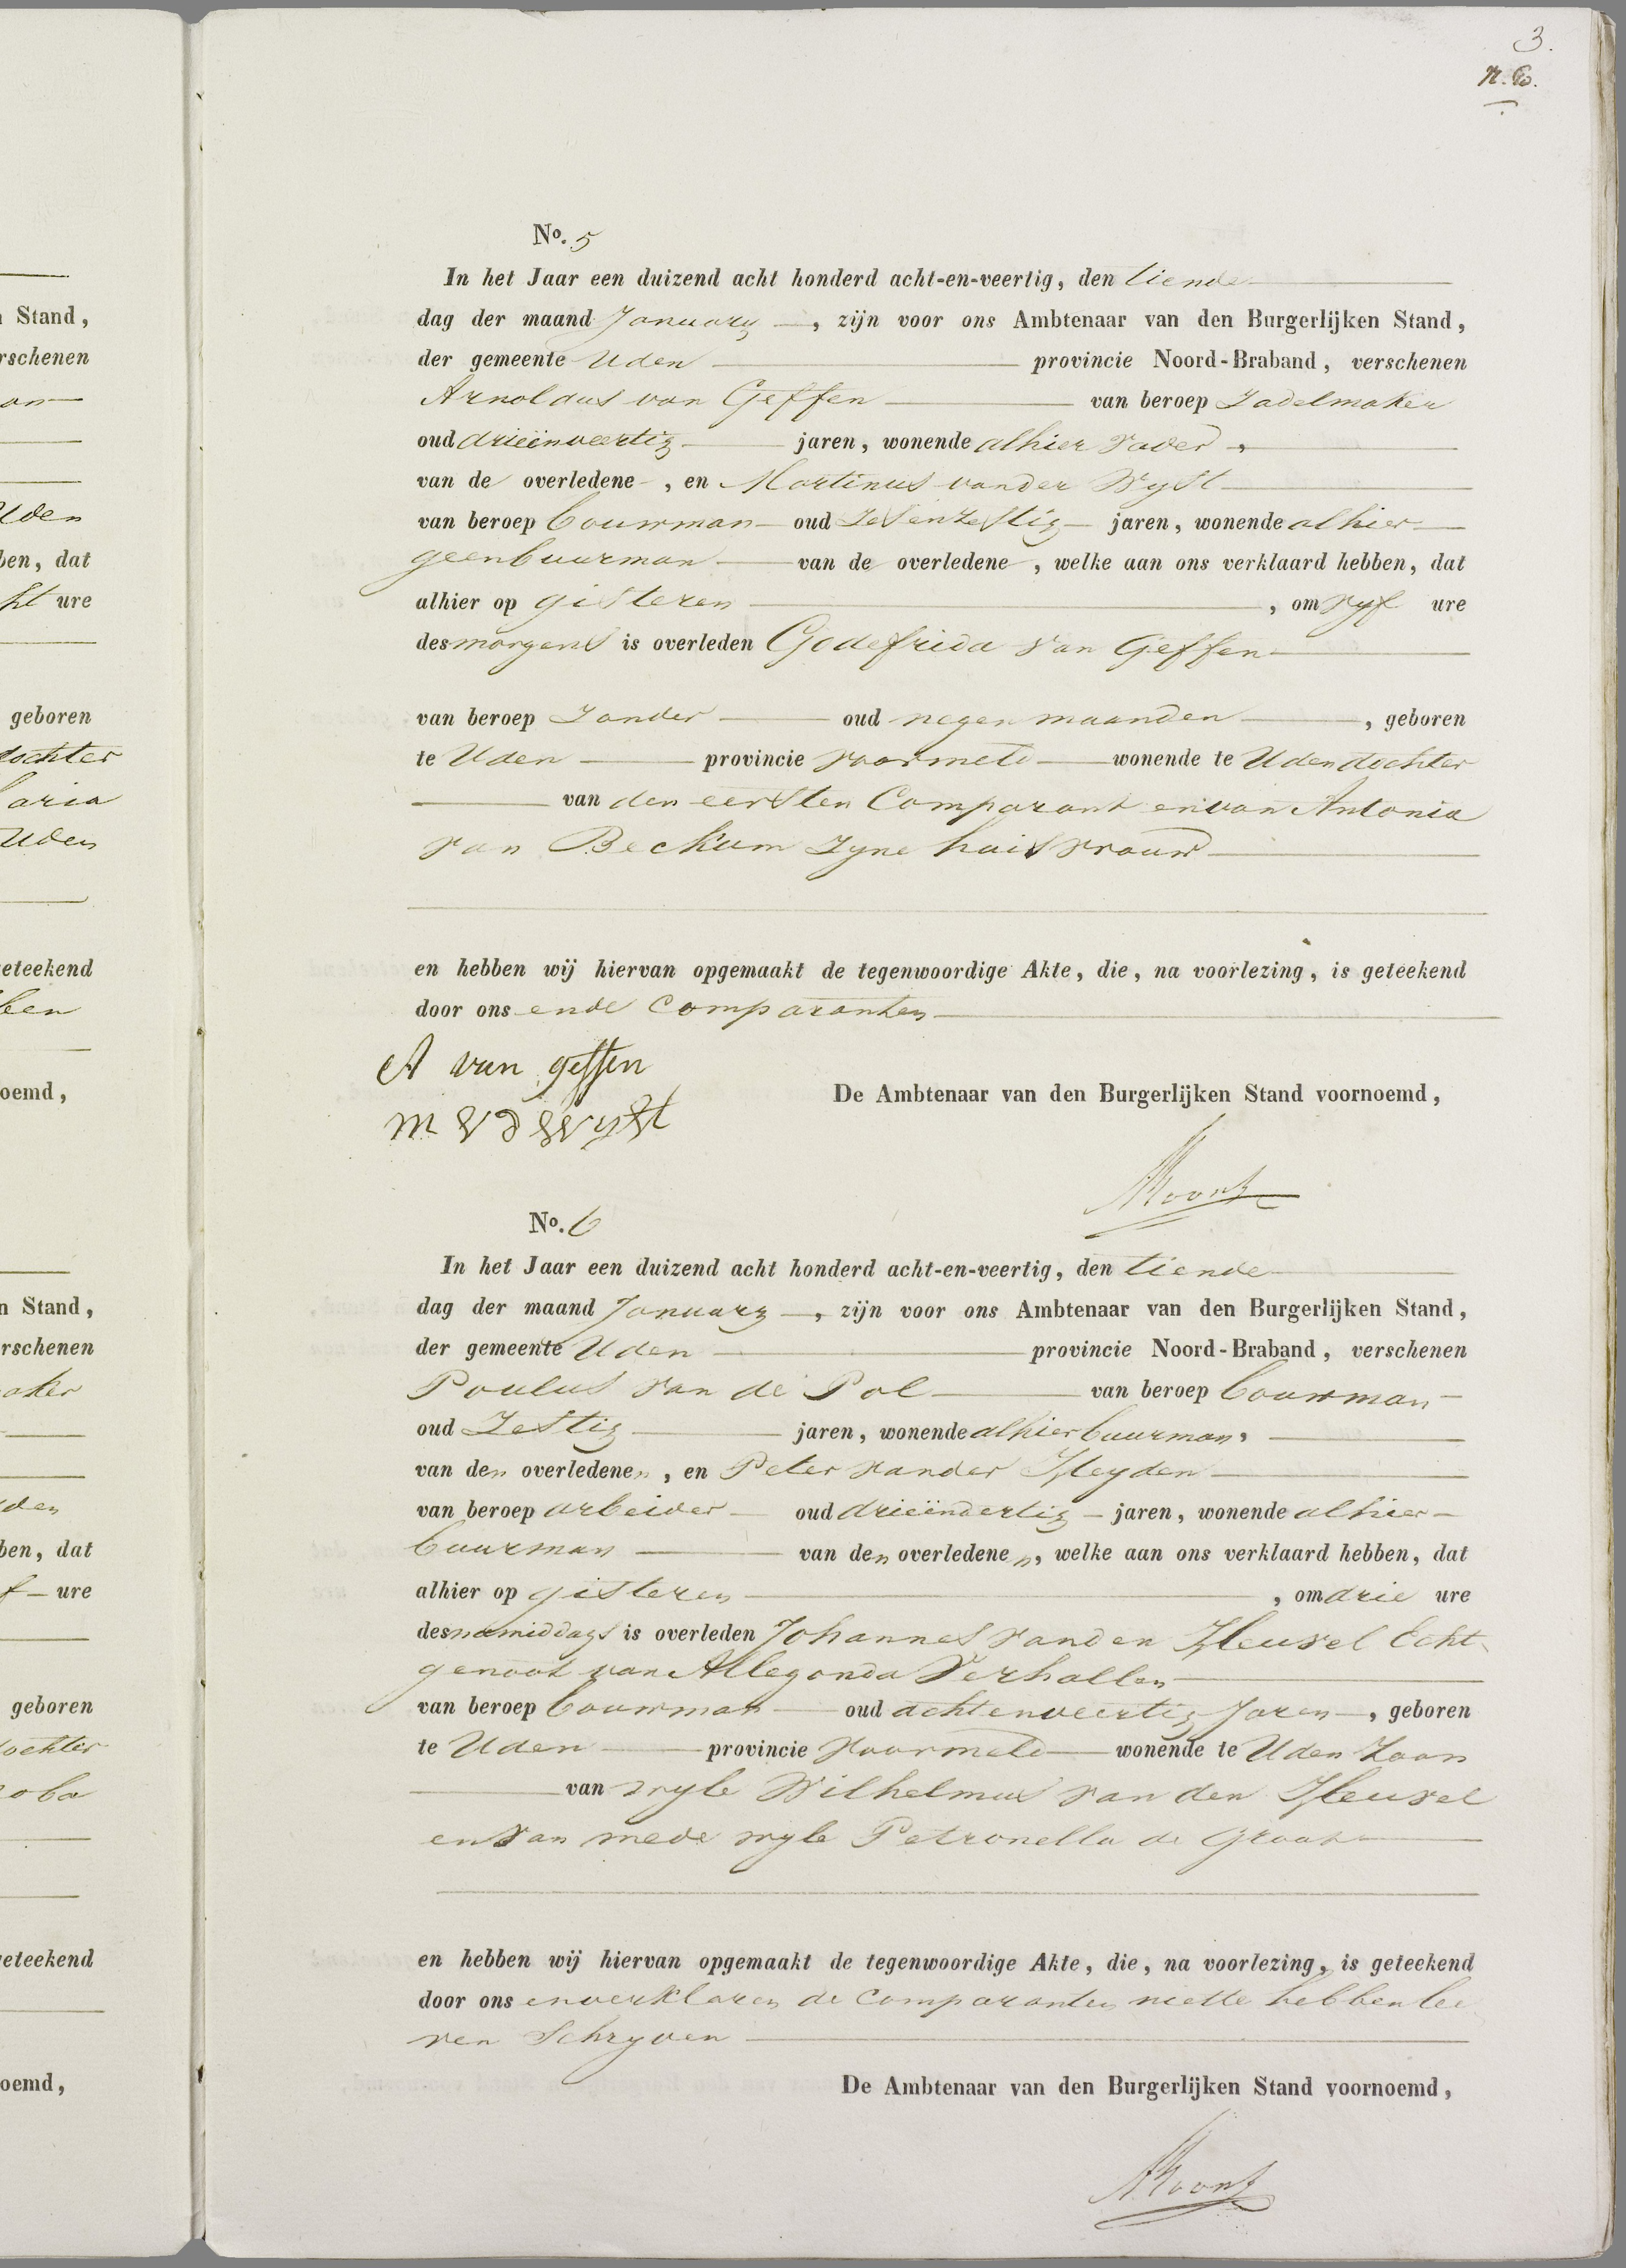 3.
No. 5
In het Jaar een duizend acht honderd acht-en-veertig, den tiende
dag der maand January, zijn voor ons Ambtenaar van den Burgerlijken Stand,
der gemeente Uden provincie Noord-Braband, verschenen
Arnoldus van Geffen van beroep Zadelmaker
oud drieënveertig jaren, wonende alhier vader,
van de overledene, en Martinus vander Wyst
van beroep bouwman oud Zesenzestig jaren, wonende alhier
geenbuurman van de overledene, welke aan ons verklaard hebben, dat
alhier op gisteren, om vyf ure
des morgens is overleden Godefrida van Geffen
van beroep Zonder oud negen maanden, geboren
te Uden provincie voormeld wonende te Uden dochter
van den eersten Comparant en van Antonia
van Beckum Zyne huisvrouw
en hebben wij hiervan opgemaakt de tegenwoordige Akte, die, na voorlezing, is geteekend
door ons ende Comparanten
A van geffen
De Ambtenaar van den Burgerlijken Stand voornoemd,
M V D Wyst
No. 6
In het Jaar een duizend acht honderd acht-en-veertig, den tiende
dag der maand January, zijn voor ons Ambtenaar van den Burgerlijken Stand,
der gemeente Uden provincie Noord-Braband, verschenen
Poulus van de Pol van beroep bouwman
oud Zestig jaren, wonende alhier buurman,
van den overledenen, en Peter vander Heyden
van beroep arbeider oud drieëndertig jaren, wonende alhier
buurman van den overledenen, welke aan ons verklaard hebben, dat
alhier op gisteren, om drie ure
des namiddags is overleden Johannes vanden Heuvel Echt
genoot van Allegonda Verhallen
van beroep bouwman oud achtenveertig Jaren, geboren
te Uden provincie voormeld wonende te Uden Zoon
van wyle Wilhelmus van den Heuvel
en van mede wyle Petronella de Groot
en hebben wij hiervan opgemaakt de tegenwoordige Akte, die, na voorlezing, is geteekend
door ons en verklaren de Comparanten niette hebben lee
ren Schryven
De Ambtenaar van den Burgerlijken Stand voornoemd,